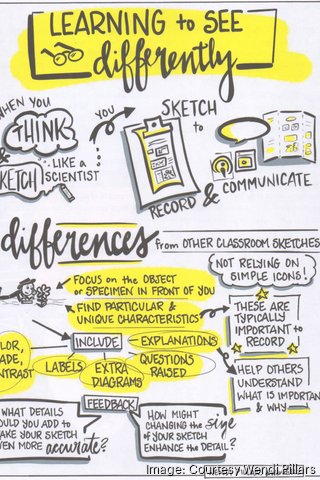 LEARNING to SEE
differently
WHEN YOU
THINK
&
SKETCH
LIKE a
SCIENTIST
YOU
SKETCH
to
RECORD & COMMUNICATE
differences from OTHER CLASSROOM SKETCHES
NOT RELYING ON
SIMPLE ICONS!
FOCUS on the OBJECT
or SPECIMEN IN FRONT OF YOU
FIND PARTICULAR &
UNIQUE CHARACTERISTICS
THESE ARE
TYPICALLY
IMPORTANT to
RECORD
INCLUDE
EXPLANATIONS
LOR,
ADE,
NTRAST
LABELS
EXTRA
DIAGRAMS
QUESTIONS
RAISED
HELP OTHERS
UNDERSTAND
WHAT IS IMPORTAN
& WHY
FEEDBACK
WHAT DETAILS
OULD YOU ADD to
AKE YOUR SKETCH
VEN MORE accurate?
HOW MIGHT
CHANGING the size
of YOUR SKETCH
ENHANCE the DETAIL?
Image: Courtesy Wendi Pillars